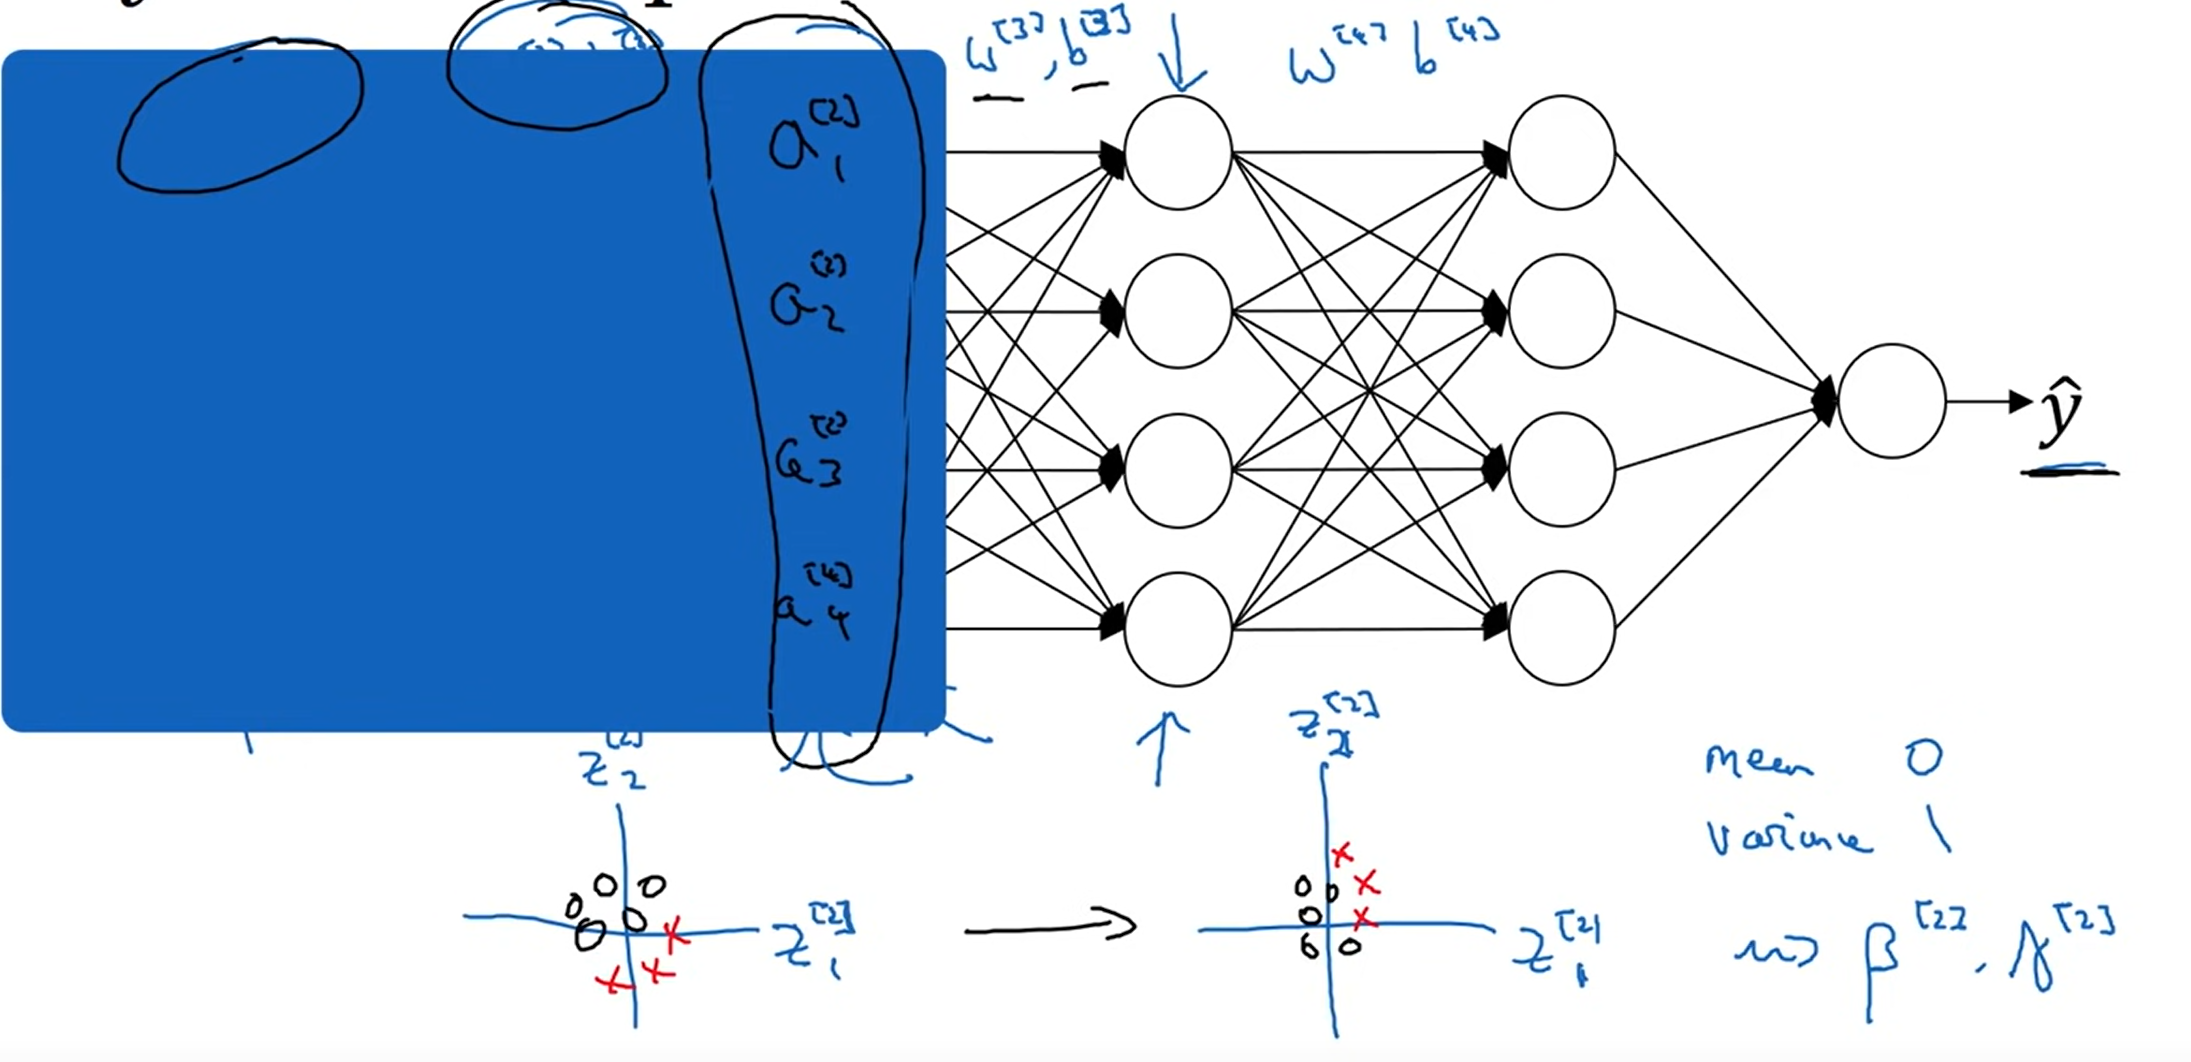 w^[3], b^[3]
w^[4] b^[4]
a_1^[2]
a_2^[2]
a_3^[2]
a_4^[4]
ŷ
z_2^[2]
z_1^[2]
z_2^[2]
z_1^[2]
mean 0
variance 1
β^[2], γ^[2]